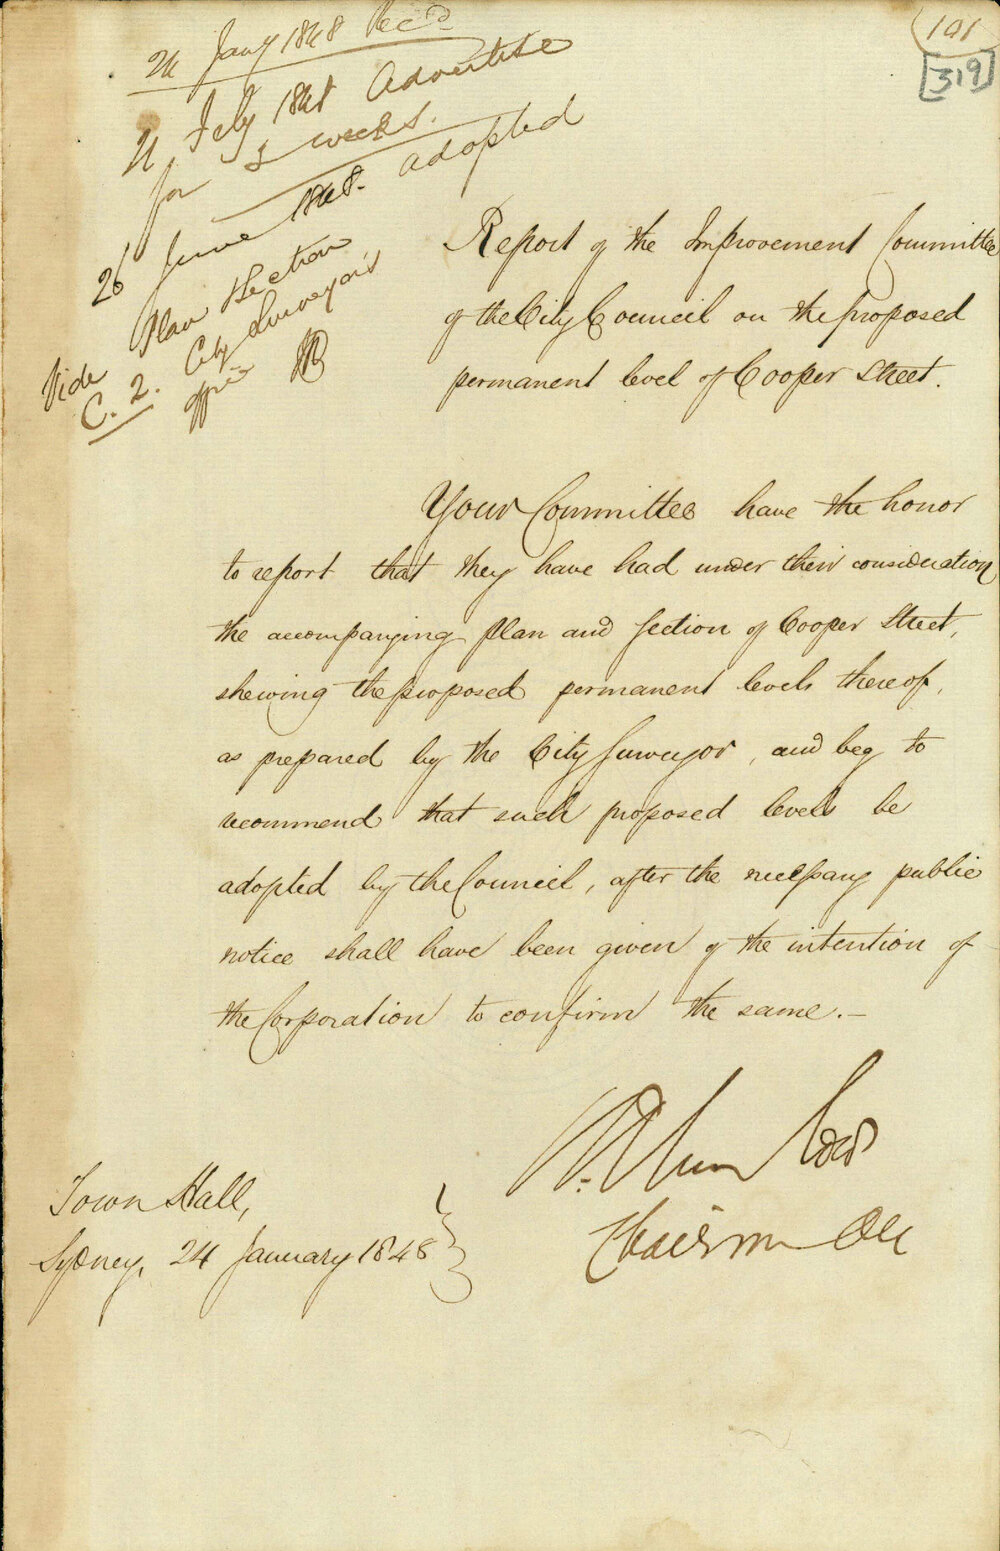 101
[319]
24 Jany 1848 Recd
21 Feby 1848 Advertise
for 2 weeks.
26 June 1848. adopted
Vide Plan & Section
C. 2. City Surveyor's
office
Report of the Improvement Committee
of the City Council on the proposed
permanent level of Cooper Street.
Your Committee have the honor
to report that they have had under their consideration
the accompanying Plan and Section of Cooper Street,
shewing the proposed permanent levels thereof,
as prepared by the City Surveyor, and beg to
recommend that such proposed levels be
adopted by the Council, after the necessary public
notice shall have been given of the intention of
the Corporation to confirm the same.—
Chairman
Town Hall,
Sydney, 24 January 1848